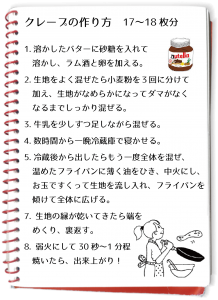 クレープの作り方　17〜18枚分
1. 溶かしたバターに砂糖を入れて
溶かし、ラム酒と卵を加える。
nutella
2. 生地をよく混ぜたら小麦粉を3回に分けて
加え、生地がなめらかになってダマがなく
なるまでしっかり混ぜる。
3. 牛乳を少しずつ足しながら混ぜる。
4. 数時間から一晩冷蔵庫で寝かせる。
5. 冷蔵後から出したらもう一度全体を混ぜ、
温めたフライパンに薄く油をひき、中火にし、
お玉ですくって生地を流し入れ、フライパンを
傾けて全体に広げる。
7. 生地の縁が乾いてきたら端を
めくり、裏返す。
8. 弱火にして30秒〜1分程
焼いたら、出来上がり！